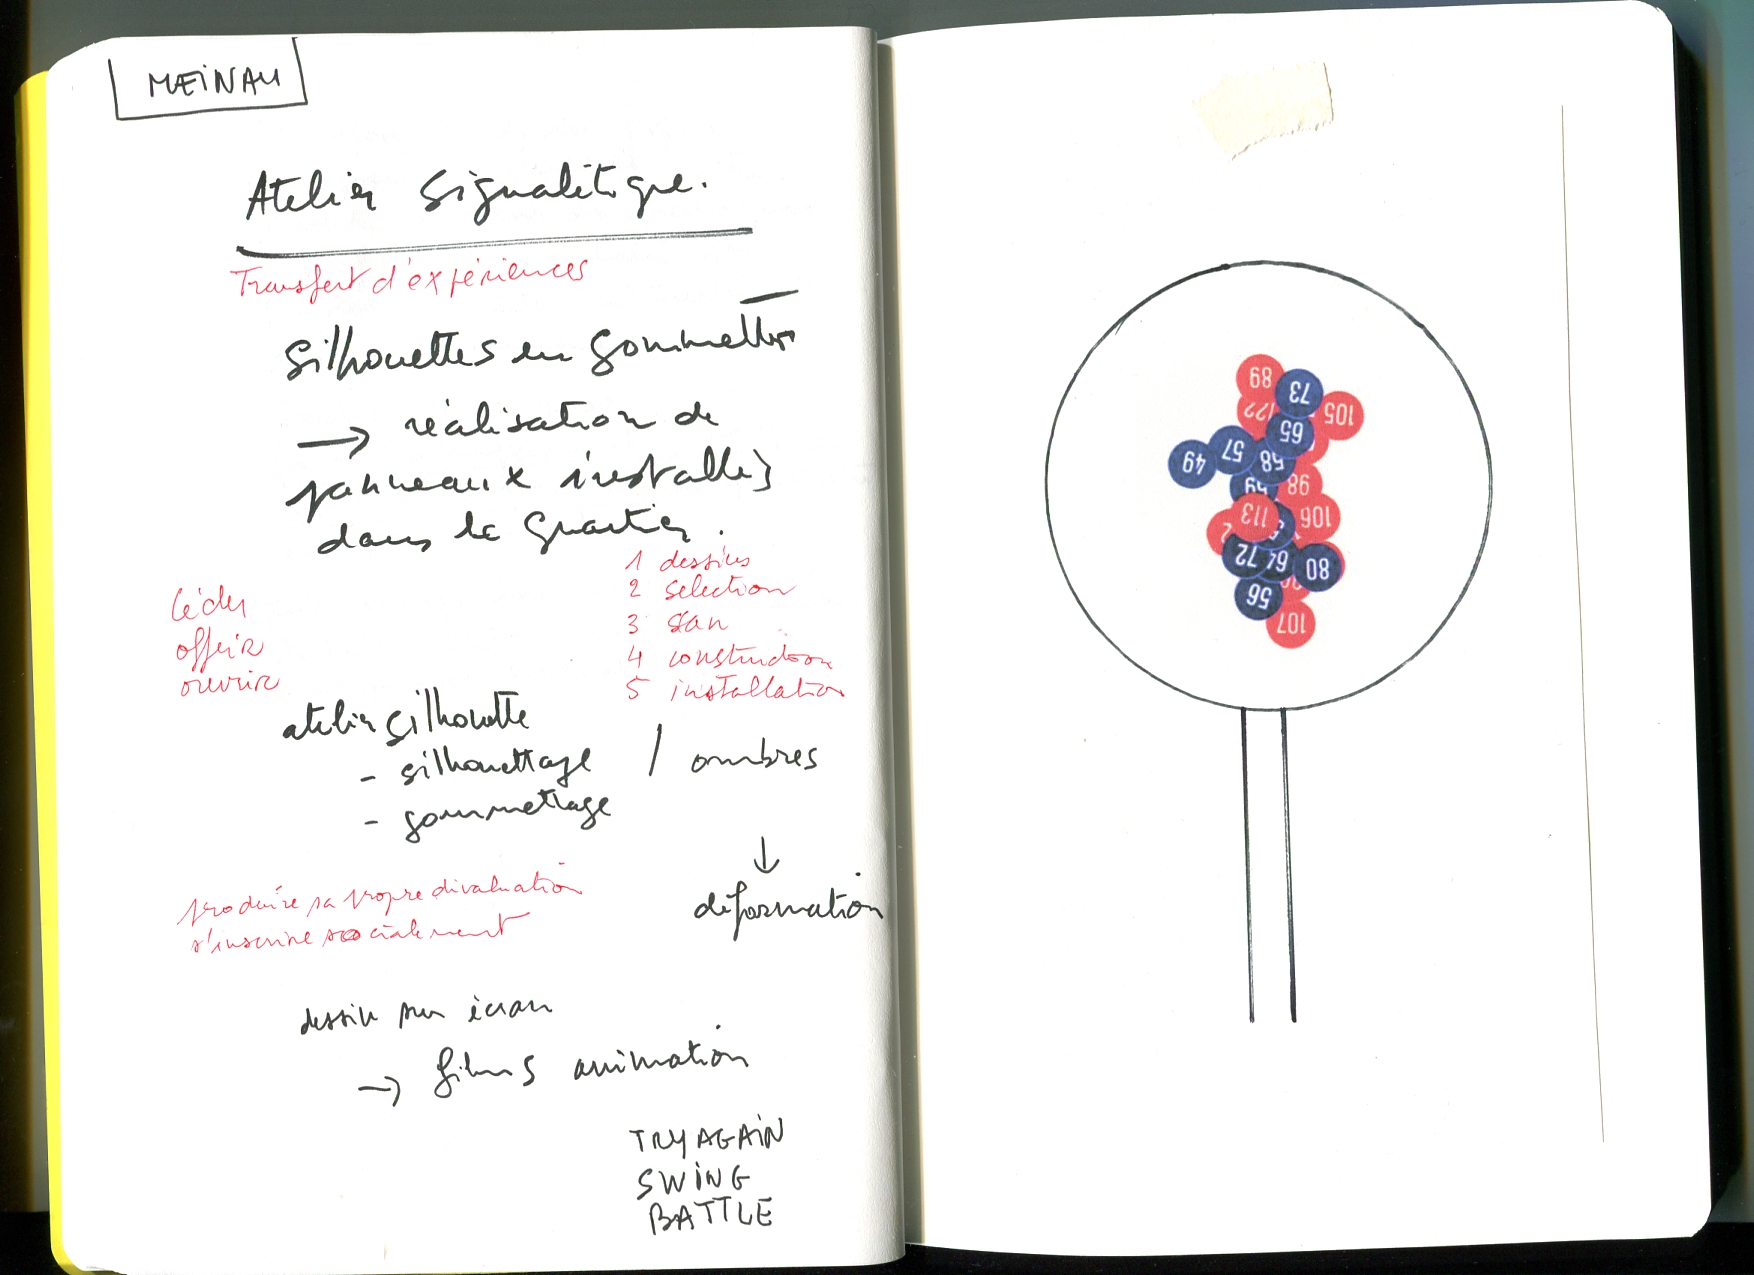 MEINAU
Atelier Signalétique.
Transfert d'expériences
Silhouettes en Gommettes
→ réalisation de
panneaux installés
dans le Quartier.
1 dessins
2 selection
3 scan
4 construction
5 installation
céder
offrir
ouvrir
atelier silhouette
- silhouettage / ombres
- gommettage
↓
déformation
produire sa propre divaluation
s'inscrire socialement
dessin sur écran
→ films animation
TRY AGAIN
SWING
BATTLE
89
73
122
105
65
57
49
58
59
98
113
106
72
64
80
56
107